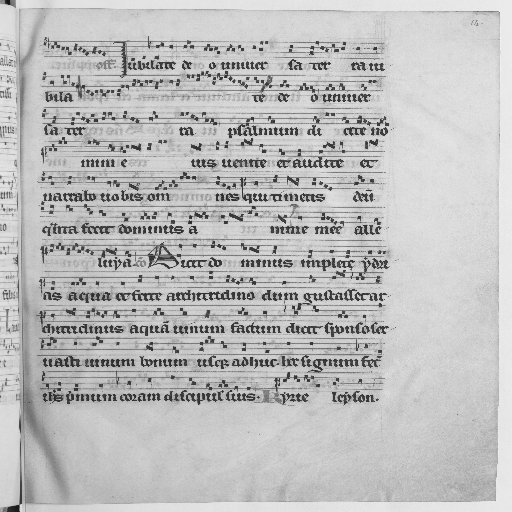 off. Iubilate de o uniuer sa ter ra iu
bila te de o uniuer
sa ter ra psalmum di cite no
mini e ius uenite et audite et
narrabo uobis om nes qui timetis deū
q̄nta fecit dominus a nime mee alle
luya. co Dicit do minus implete ydri
as aqua et ferte architriclino dum gustasset ar
chitriclinus aquā uinum factum dicit sponso ser
uasti uinum bonum usq; adhuc hoc signum fec̄
ih̄s p̄mum coram discipul' suis. Kyrie leyson.